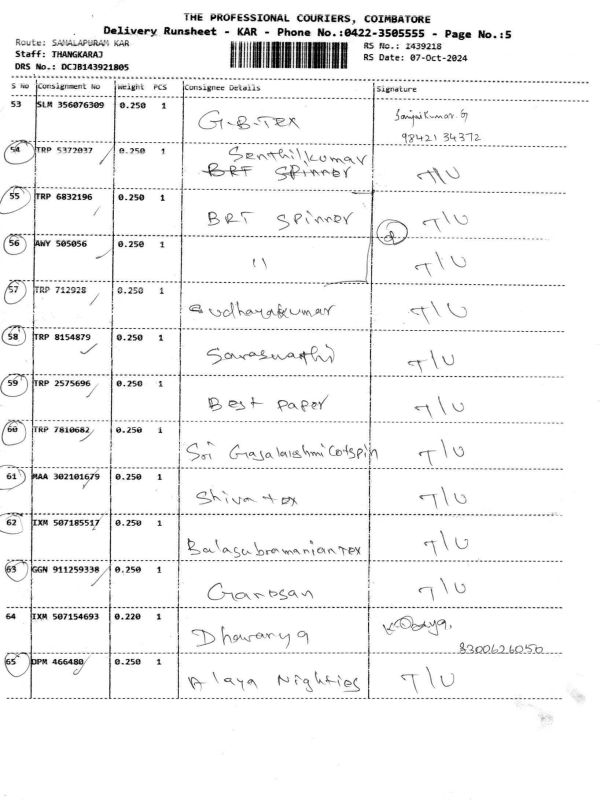 THE PROFESSIONAL COURIERS, COIMBATORE
Delivery Runsheet - KAR - Phone No.:0422-3505555 - Page No.:5
Route: SAMALAPURAM KAR
RS No.: I439218
Staff: THANGKARAJ
RS Date: 07-Oct-2024
DRS No.: DCJB143921805
S No Consignment No Weight PCS Consignee Details Signature
53 SLM 356076309 0.250 1 G.B.Tex Sanjaikumar.G
98421 34372
54 TRP 5372037 0.250 1 Senthilkumar T/U
BRT Spinner
55 TRP 6832196 0.250 1 BRT Spinner T/U
56 AWY 505056 0.250 1 11 T/U
57 TRP 712928 0.250 1 Sudhayakumar T/U
58 TRP 8154879 0.250 1 Saraswathi T/U
59 TRP 2575696 0.250 1 Best Paper T/U
60 TRP 7810682 0.250 1 Sri Gajalakshmi Cotspin T/U
61 MAA 302101679 0.250 1 Shiva tex T/U
62 IXM 507185517 0.250 1 Balasubramanian Tex T/U
63 GGN 911259338 0.250 1 Ganesan T/U
64 IXM 507154693 0.220 1 Dhavanya
8300626050
65 DPM 466480 0.250 1 Alaya Nighties T/U